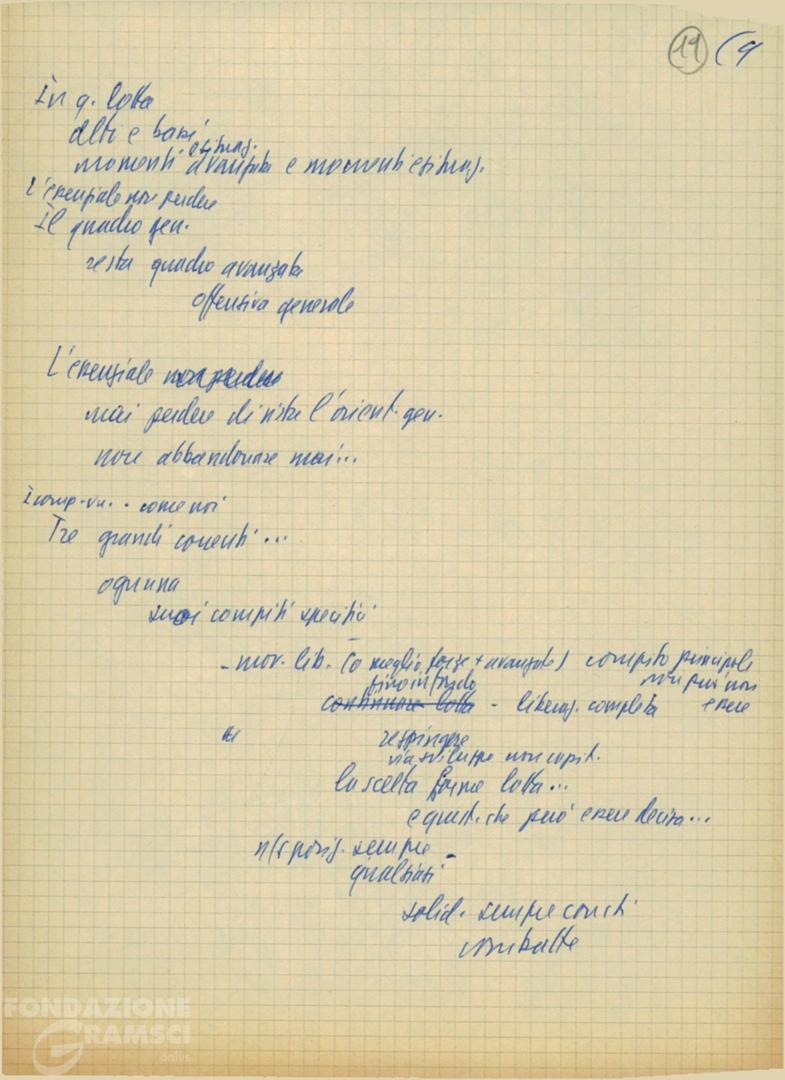 19 (9
In q. lotta
alti e bassi
momenti avanzata e momenti
L'essenziale non perdere
Il quadro gen.
resta quadro avanzata
offensiva generale
L'essenziale non perdere
mai perdere di vista l'orient. gen.
non abbandonare mai...
come noi
Tre grandi correnti...
ognuna
suoi compiti specifici
- mov. lib. (o meglio forze + avanzate) compito principale
fino in fondo non può non
continuare lotta - liberaz. completa essere
respingere
via sviluppo non capit.
la scelta forme lotta...
è quest. che può essere decisa...
posiz. sempre -
qualsiasi
solid. sempre con chi
combatte
FONDAZIONE
GRAMSCI
onlus